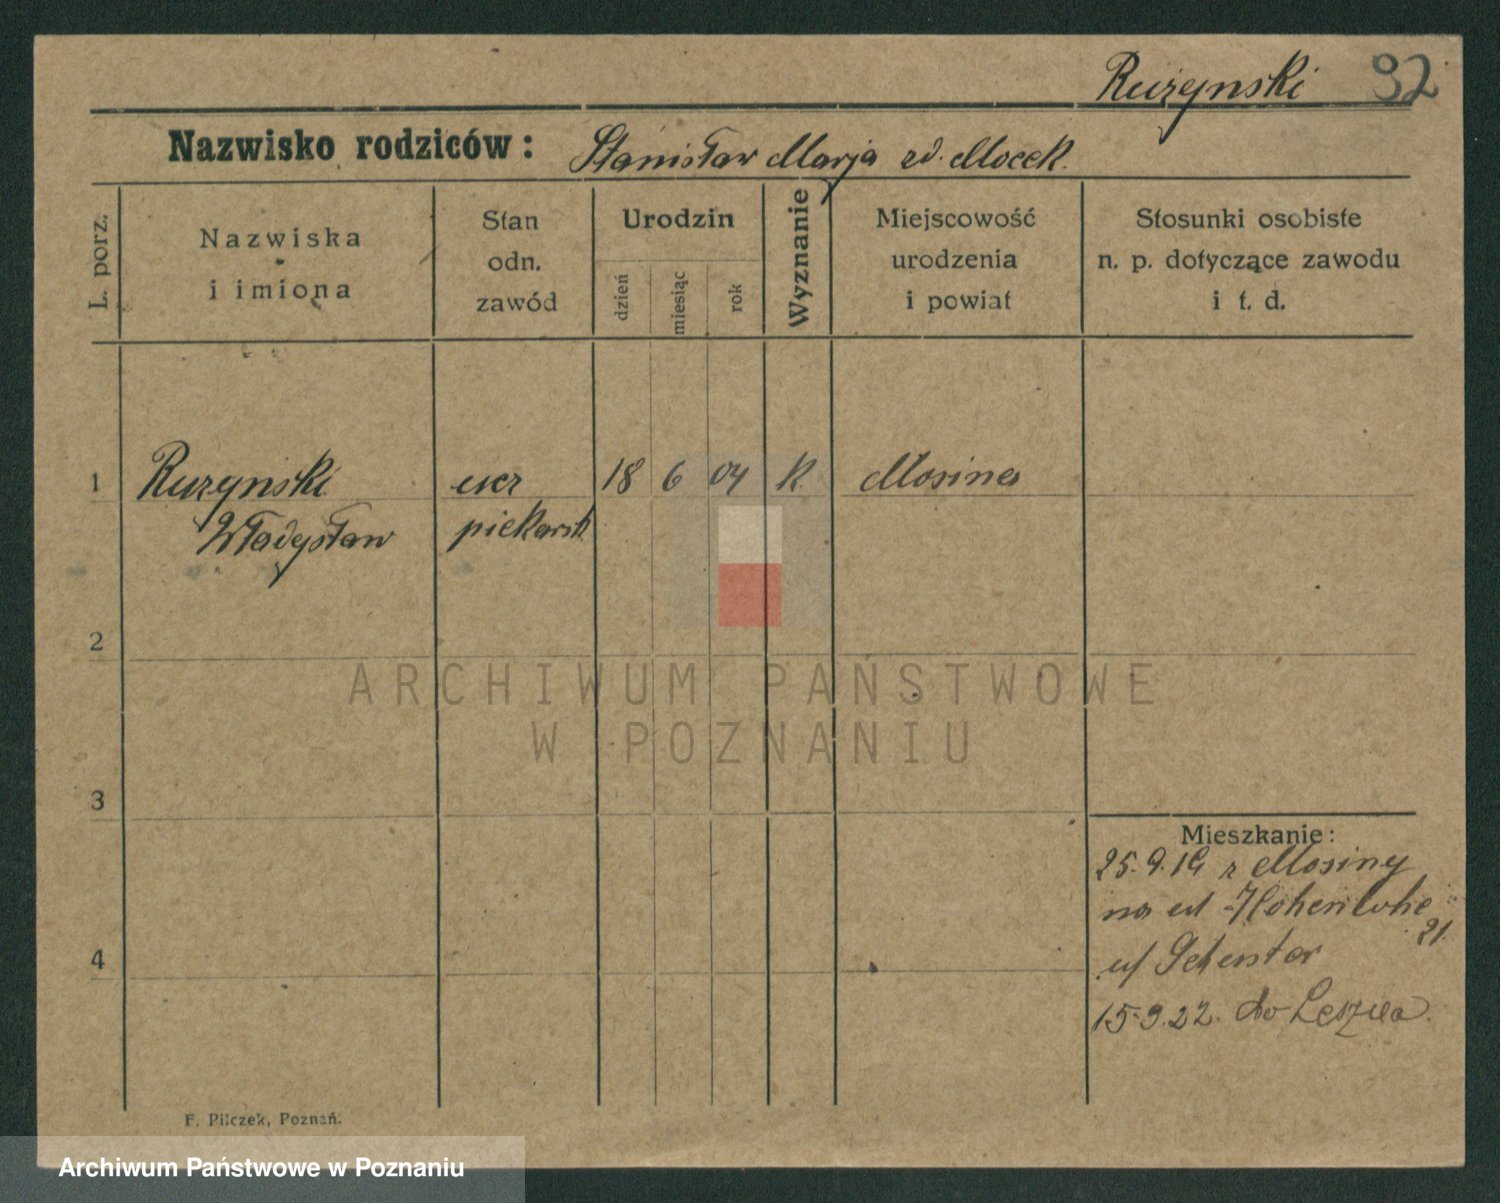 Rużynski 92
Nazwisko rodziców: Stanisław Marja zd. Mocek.
L. porz.
Nazwiska
i imiona
Stan
odn.
zawód
Urodzin
dzień
miesiąc
rok
Wyznanie
Miejscowość
urodzenia
i powiat
Stosunki osobiste
n. p. dotyczące zawodu
i t. d.
1 Rużynski ucz 18 6 04 K. Mosina
Władysław piekarsk.
2
3
4
Mieszkanie:
25.9.19 z Mosiny
na ul Hohenlohe
21.
u/
15.9.22. do Leszna.
F. Pilczek, Poznań.
ARCHIWUM PAŃSTWOWE
W POZNANIU
Archiwum Państwowe w Poznaniu